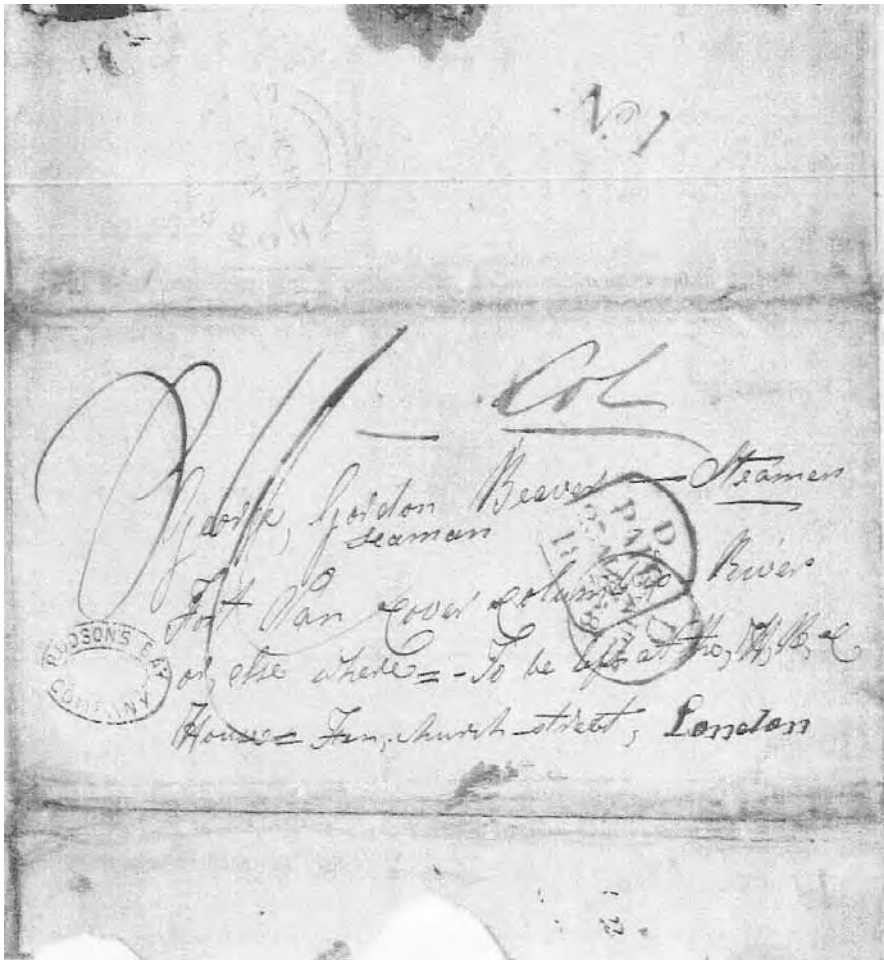 No. 1
Col
George, Gordon Beaver — Steamer
seaman
Fort Van Cover Columbia - River
or, else where = - To be left at the, H, B, C
House = Fen, church - street, London
HUDSON'S BAY
COMPANY
PAID